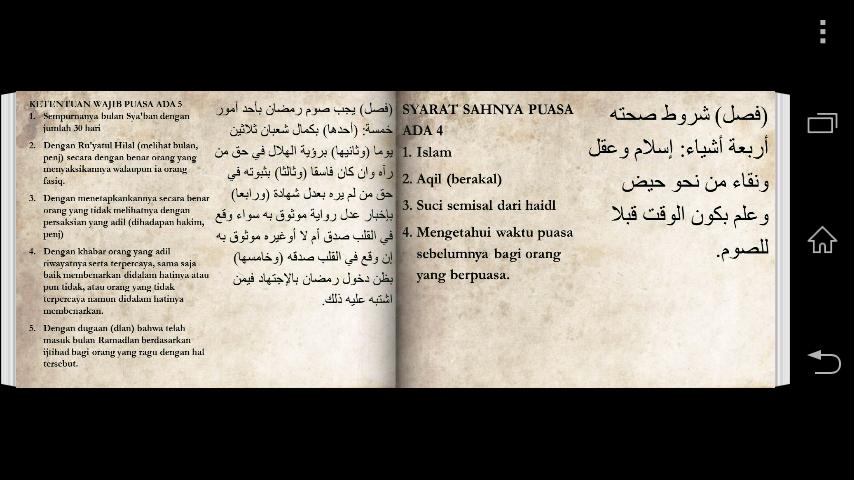 KETENTUAN WAJIB PUASA ADA 5
1. Sempurnanya bulan Sya'ban dengan
jumlah 30 hari
2. Dengan Ru'yatul Hilal (melihat bulan,
penj) secara dengan benar orang yang
menyaksikannya walaupun ia orang
fasiq.
3. Dengan menetapkankannya secara benar
orang yang tidak melihatnya dengan
persaksian yang adil (dihadapan hakim,
penj)
4. Dengan khabar orang yang adil
riwayatnya serta terpercaya, sama saja
baik membenarkan didalam hatinya atau
pun tidak, atau orang yang tidak
terpercaya namun didalam hatinya
membenarkan.
5. Dengan dugaan (dlan) bahwa telah
masuk bulan Ramadlan berdasarkan
ijtihad bagi orang yang ragu dengan hal
tersebut.
(فصل) يجب صوم رمضان بأحد أمور
خمسة: (أحدها) بكمال شعبان ثلاثين
يوما (وثانيها) برؤية الهلال في حق من
رآه وان كان فاسقا (وثالثا) بثبوته في
حق من لم يره بعدل شهادة (ورابعا)
بإخبار عدل رواية موثوق به سواء وقع
في القلب صدق أم لا أوغيره موثوق به
إن وقع في القلب صدقه (وخامسها)
بظن دخول رمضان بالإجتهاد فيمن
اشتبه عليه ذلك.
SYARAT SAHNYA PUASA
ADA 4
1. Islam
2. Aqil (berakal)
3. Suci semisal dari haidl
4. Mengetahui waktu puasa
sebelumnya bagi orang
yang berpuasa.
(فصل) شروط صحته
أربعة أشياء: إسلام وعقل
ونقاء من نحو حيض
وعلم بكون الوقت قبلا
للصوم.